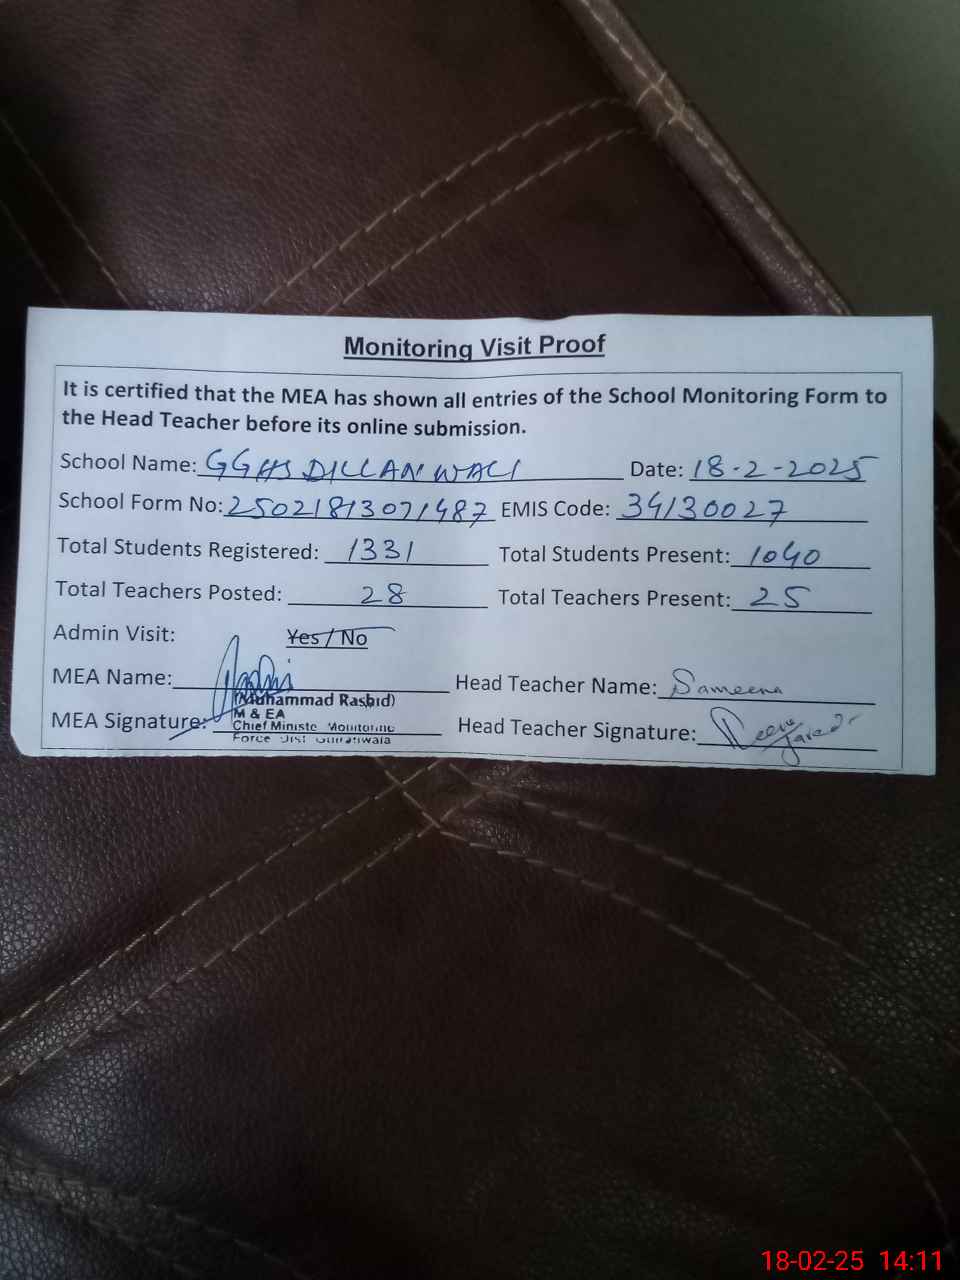 Monitoring Visit Proof
It is certified that the MEA has shown all entries of the School Monitoring Form to
the Head Teacher before its online submission.
School Name: GGHS DILLAN WALI Date: 18-2-2025
School Form No: 25021813071487 EMIS Code: 34130027
Total Students Registered: 1331 Total Students Present: 1040
Total Teachers Posted: 28 Total Teachers Present: 25
Admin Visit: Yes / No
MEA Name: Head Teacher Name: Sameena
(Muhammad Rashid)
M & EA
MEA Signature: Chief Ministe Monitoring Head Teacher Signature:
Force Dist
18-02-25 14:11